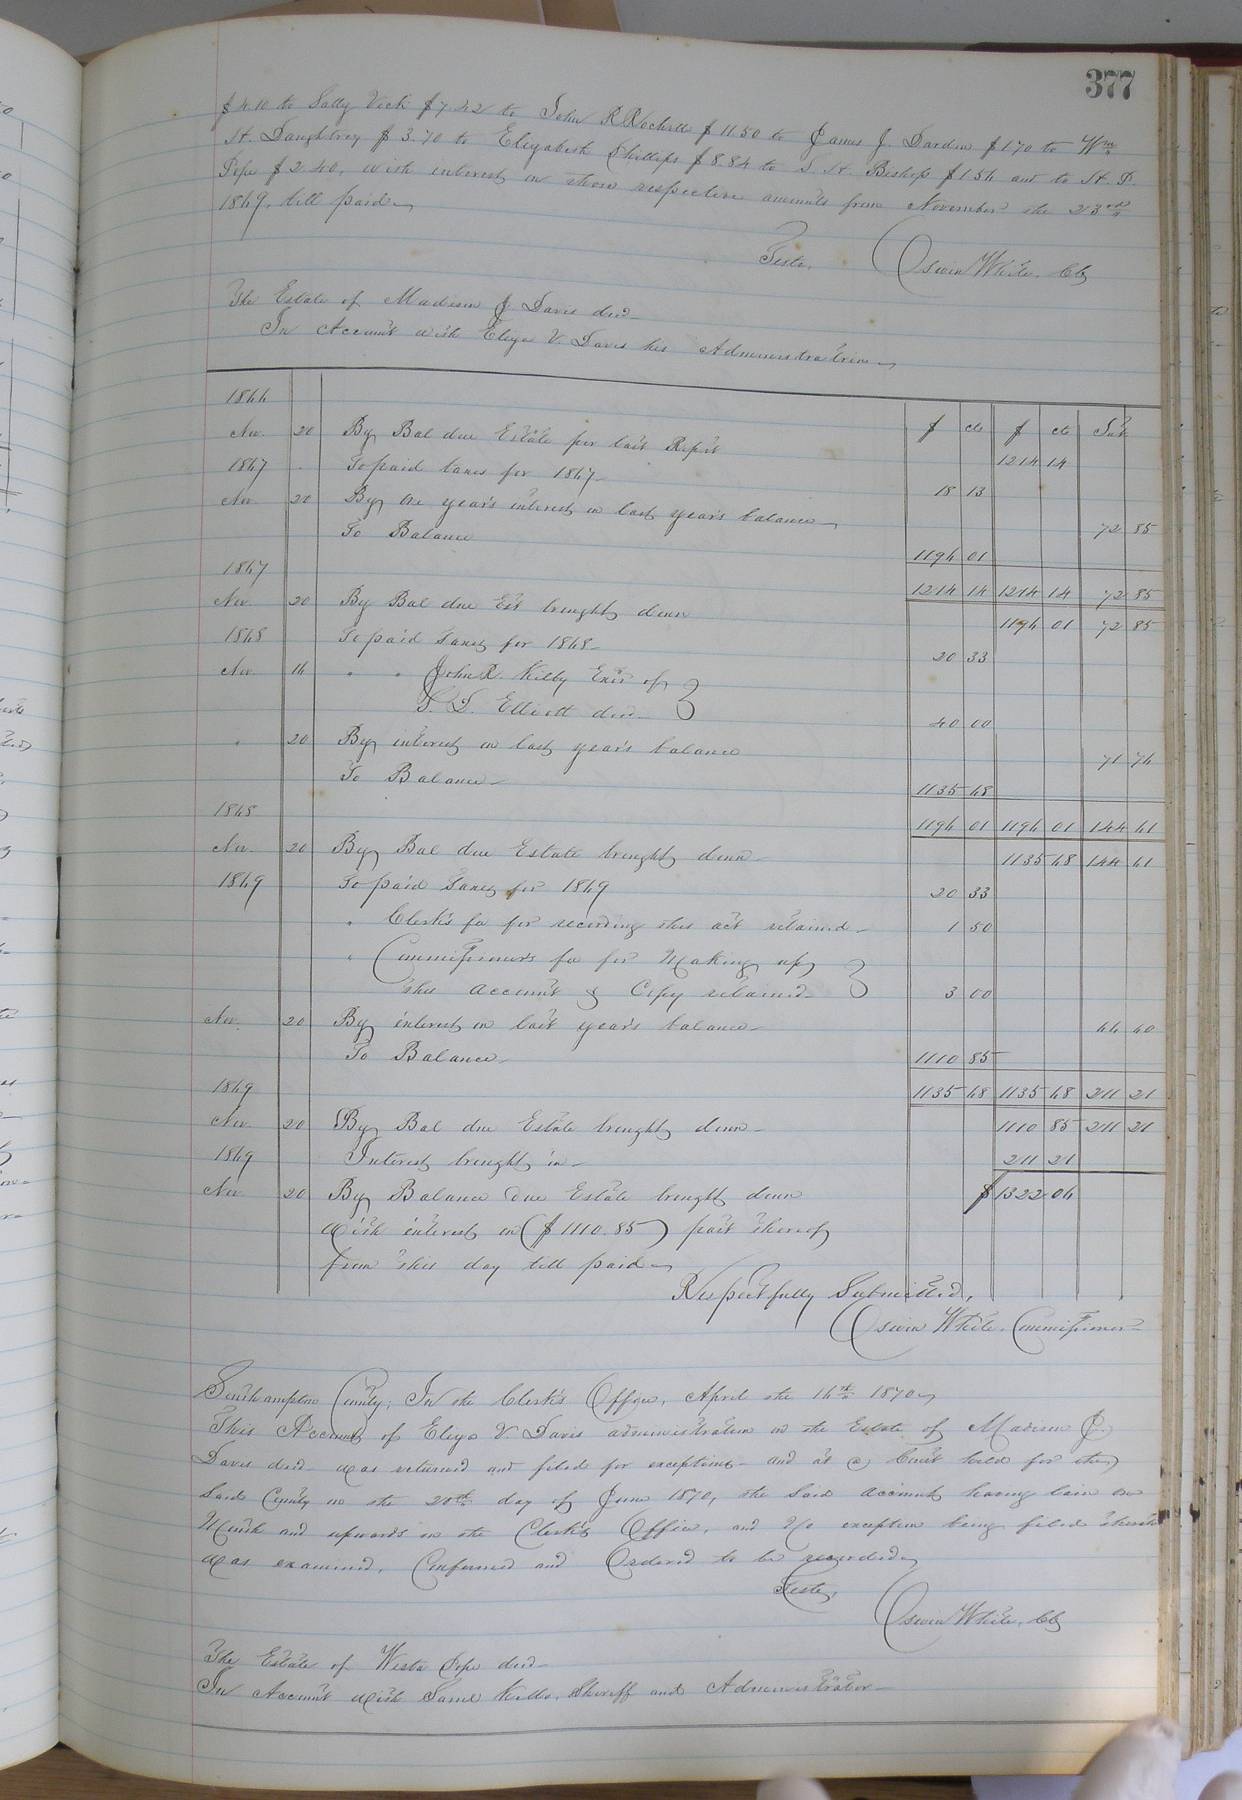 377
$4.10 to Sally Vick $7.42 to John R Rochelle $11.50 to James J. Darden $1.70 to Wm
H. Daughtrey $3.70 to Elizabeth Phillips $8.84 to S. H. Bishop $1.56 and to H. P.
Pope $2.40, with interest on those respective amounts from November the 23rd
1869, till paid
Teste, Oswin White, Clk
The Estate of Madison J. Davis decd
In Account with Eliza V. Davis his Administratrix
1866 $ cts $ cts Int
Nov. 20 By Bal due Estate per last Report 1214 14
1867 To paid taxes for 1867 18 13
Nov. 20 By one year's interest on last year's balance 72 85
To Balance 1196 01
1867 1214 14 1214 14 72 85
Nov. 20 By Bal due Est brought down 1196 01 72 85
1868 To paid Taxes for 1868 20 33
Nov. 16 " " John R. Kilby Exor of
Elliott decd 40 00
" 20 By interest on last year's balance 71 76
To Balance 1135 68
1868 1196 01 1196 01 144 61
Nov. 20 By Bal due Estate brought down 1135 68 144 61
1869 To paid Taxes for 1869 20 33
" Clerk's fee for recording this act retained 1 50
" Commissioner's fee for Making up
this account & Copy retained 3 00
Nov. 20 By interest on last year's balance 66 60
To Balance 1110 85
1869 1135 68 1135 68 211 21
Nov. 20 By Bal due Estate brought down 1110 85 211 21
1869 Interest brought in 211 21
Nov. 20 By Balance due Estate brought down $1322 06
with interest on ($1110.85) part thereof
from this day till paid
Respectfully Submitted,
Oswin White, Commissioner
Southampton County; In the Clerk's Office, April the 16th 1870
This Account of Eliza V. Davis administratrix on the Estate of Madison J.
Davis decd was returned and filed for exceptions and at a Court held for the
said County on the 20th day of June 1870, the said account having lain one
Month and upwards in the Clerk's Office, and No exception being filed thereto
was examined, Confirmed and Ordered to be recorded
Teste, Oswin White, Clk
The Estate of Pope decd
In Account with Kello, Sheriff and Administrator